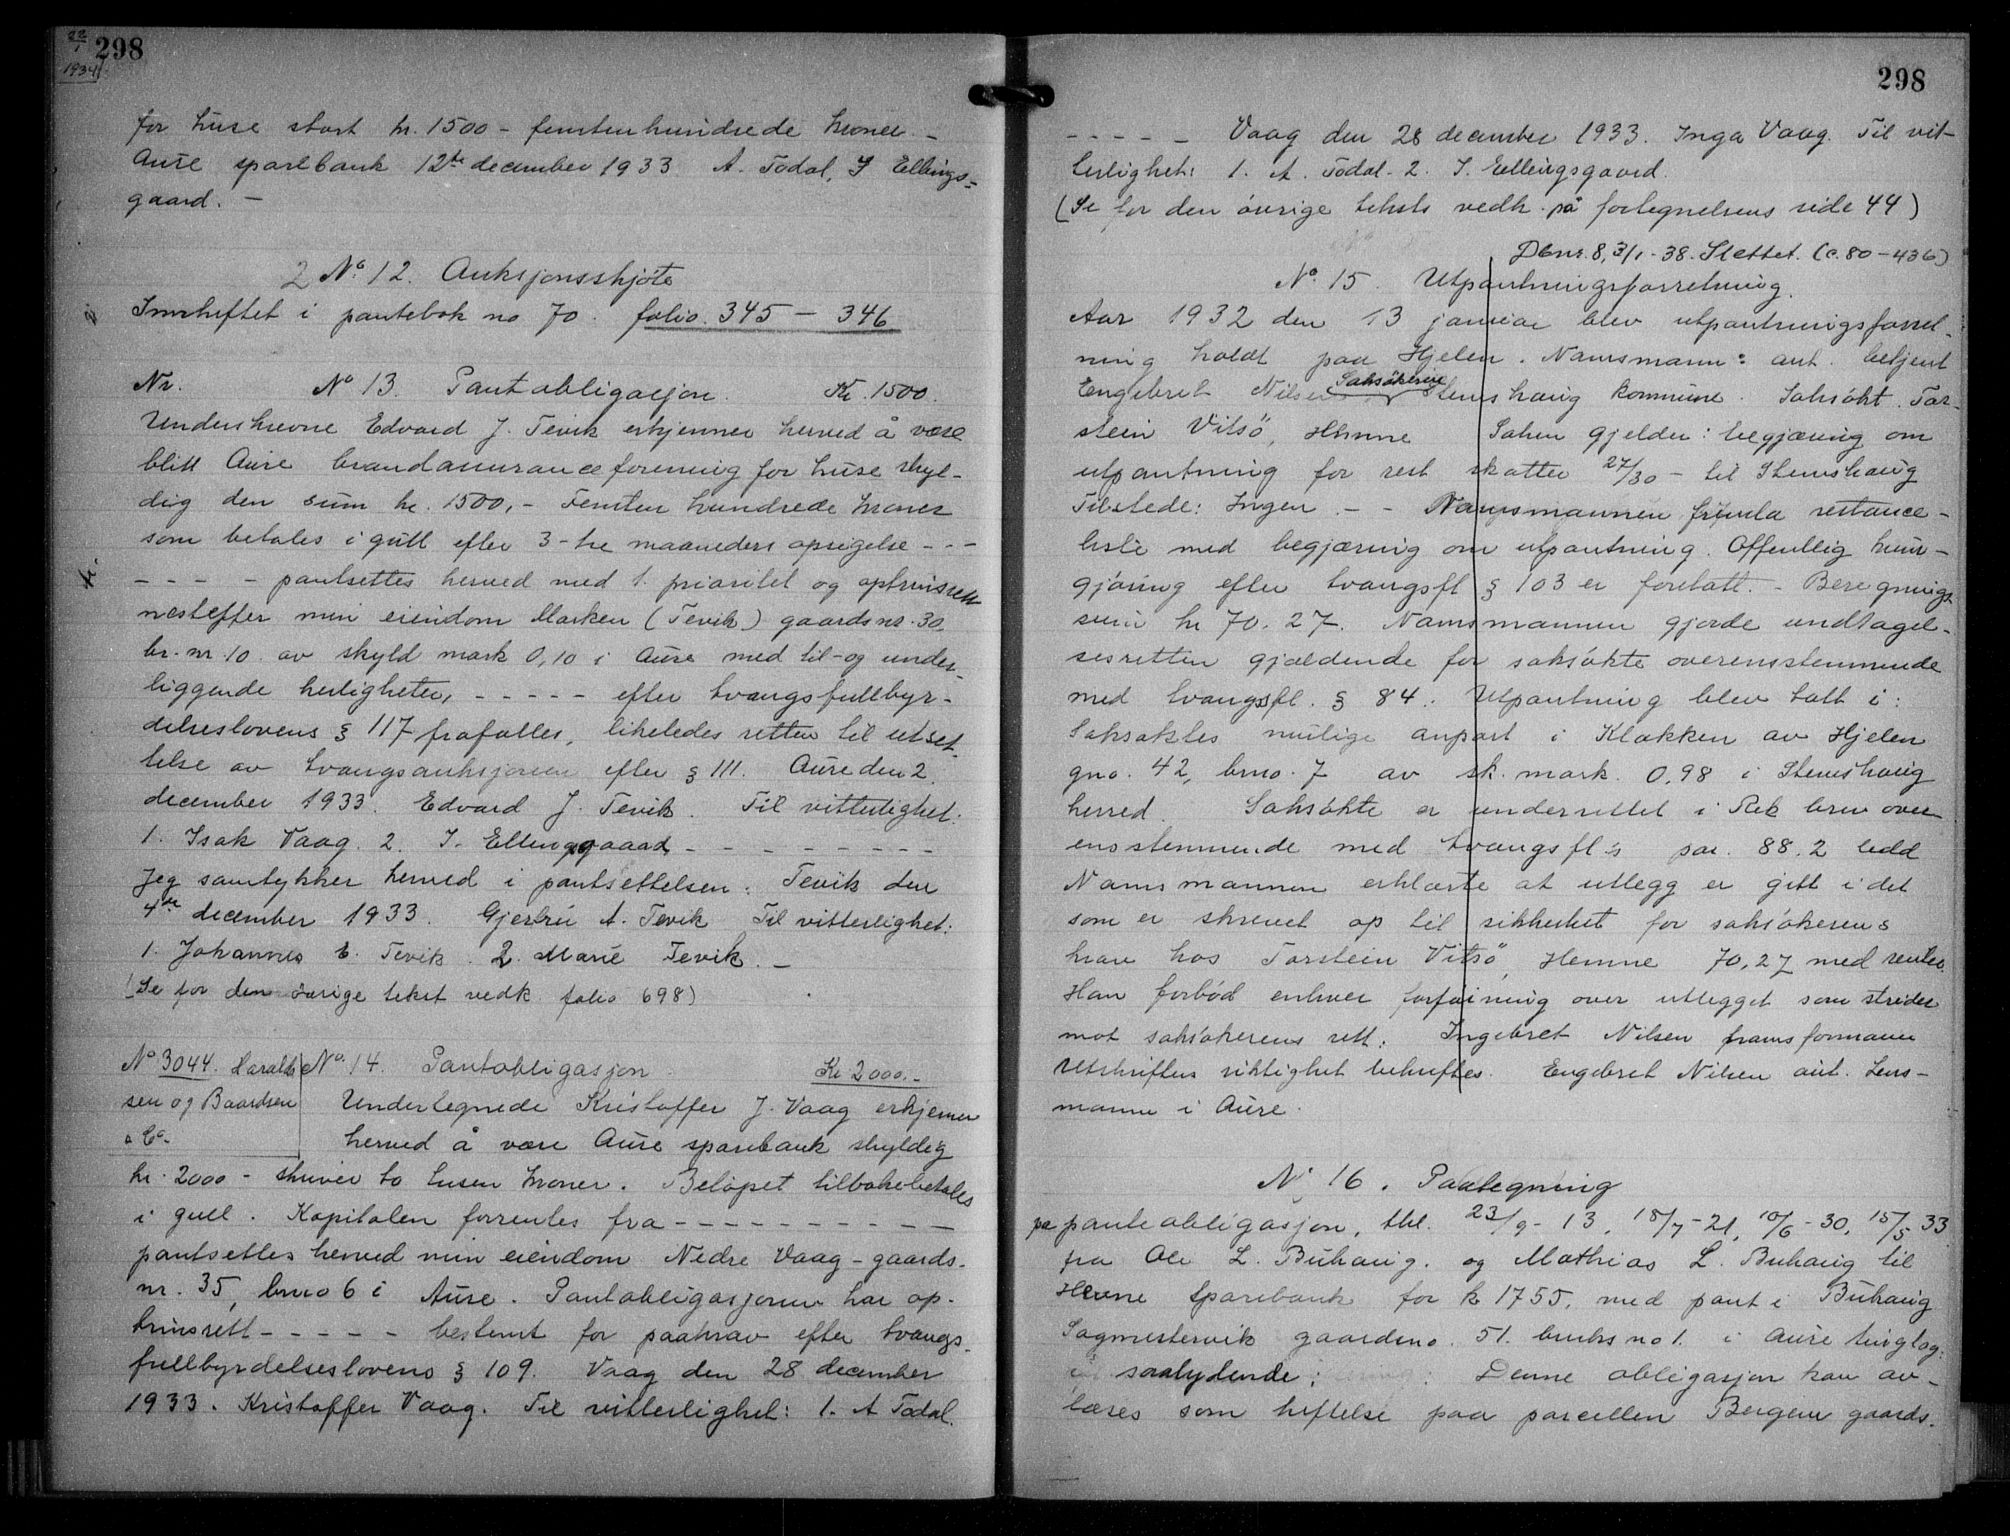 22/1 1934
298
for huse stort kr. 1500 - femtenhundrede kroner. -
Aure sparebank 12te december 1933 A. Todal, I Ellings-
gaard. -
2 No. 12. Auksjonsskjøte
Innheftet i pantebok no 70. folio. 345 - 346
Nr. No 13. Pantobligasjon. Kr. 1500.
Underskrevne Edvard J. Tevik erkjenner herved å være
blitt Aure brandassuranceforening for huse skyl-
dig den sum kr. 1500,- Femten hundrede kroner
som betales i gull efter 3-tre maaneders opsigelse - - -
- - - - pantsettes herved med 1. prioritet og optrinsrett
nesteffer min eiendom Marken (Tevik) gaardsnr. 30
br. nr 10 av skyld mark 0,10 i Aure med til- og under-
liggende herligheter, - - - - - efter tvangsfullbyr-
delseslovens § 117 frafalles, likeledes retten til utset
telse av tvangsauksjonen efter § 111. Aure den 2.
december 1933. Edvard J. Tevik. Til vitterlighet:
1. Isak Vaag. 2. I. Ellingsgaard - - - - - - - -
Jeg samtykker herved i pantsettelsen: Tevik den
4de december 1933. Gjertru A. Tevik Til vitterlighet:
1. Johannes E. Tevik. 2. Marie Tevik. -
(Se for den øvrige tekst vedk. folio 698)
No 3044. Haralds No. 14. Pantobligasjon Kr 2000.-
sen og Baardsen Undertegnede Kristoffer J. Vaag erkjenner
& Co. herved å være Aure sparebank skyldig
kr. 2000 - skriver to tusen kroner. Beløpet tilbakebetales
i gull. Kapitalen forrentes fra - - - - - - - - - -
pantsettes herved min eiendom Nedre Vaag - gaards-
nr. 35, brno 6 i Aure. Pantobligasjonen har op-
trinsrett - - - - - bestemt for paakrav efter tvangs-
fullbyrdelseslovens § 109. Vaag den 28 december
1933. Kristoffer Vaag. Til vitterlighet: 1. A Todal.
298
- - - - - Vaag den 28 december 1933. Inga Vaag. Til vit-
terlighet: 1. A. Todal. 2. I. Ellingsgaard.
(Se for den øvrige teksts vedk. på fortegnelsens side 44)
Dbnr. 8, 3/1 - 38. Slettet. (C. 80 - 436)
No 15. Utpantningsforretning.
Aar 1932 den 13 januar blev utpantningsforret-
ning holdt paa Hjelen. Namsmann: aut. betjent
Engebret Nilsen. Saksøkerne Stemshaug kommune. Saksøkt. Tor-
stein Vitsö, Hemne Saken gjelder: begjæring om
utpantning for rest skatter 27/30 - til Stemshaug
Tilstede: Ingen. - - Namsmannen fremla restance-
liste med begjæring om utpantning. Offentlig kunn-
gjøring efter tvangsfl § 103 er foretatt. - Beregnings
sum kr 70.27. Namsmannen gjorde undtagel-
sesretten gjældende for saksøkte overensstemmende
med tvangsfl. § 84. Utpantning blev tatt i:
Saksøktes mulige anpart i Klakken av Hjelen
gno. 42, brno. 7 av sk. mark. 0,98 i Stemshaug
herred. Saksøkte er underrettet i Rek brev over
ensstemmende med tvangsfl's par. 88. 2 ledd
Namsmannen erklærte at utlegg er gitt i det
som er skrevet op til sikkerhet for saksøkerens
krav hos Torstein Vitsö, Hemne 70,27 med renter.
Han forbød enhver forføining over utlegget som strider
mot saksøkerens rett: Ingebret Nilsen framsformann
Utskriftens riktighet bekreftes. Engebret Nilsen aut. Lens-
mann i Aure.
No 16. Paategning
pa panteobligasjon, tbl. 23/9 - 13, 18/7 - 21, 10/6 - 30, 15/5 33
fra Ole L. Buhaug. og Mathias L. Buhaug til
Hevne Sparebank for k 1755, med pant i Buhaug
Sagmestervik gaardsno. 51. bruks no 1. i Aure tinglag:
saalydende: Denne obligasjon kan av-
læses som heftelse paa parcellen Bergem gaards-